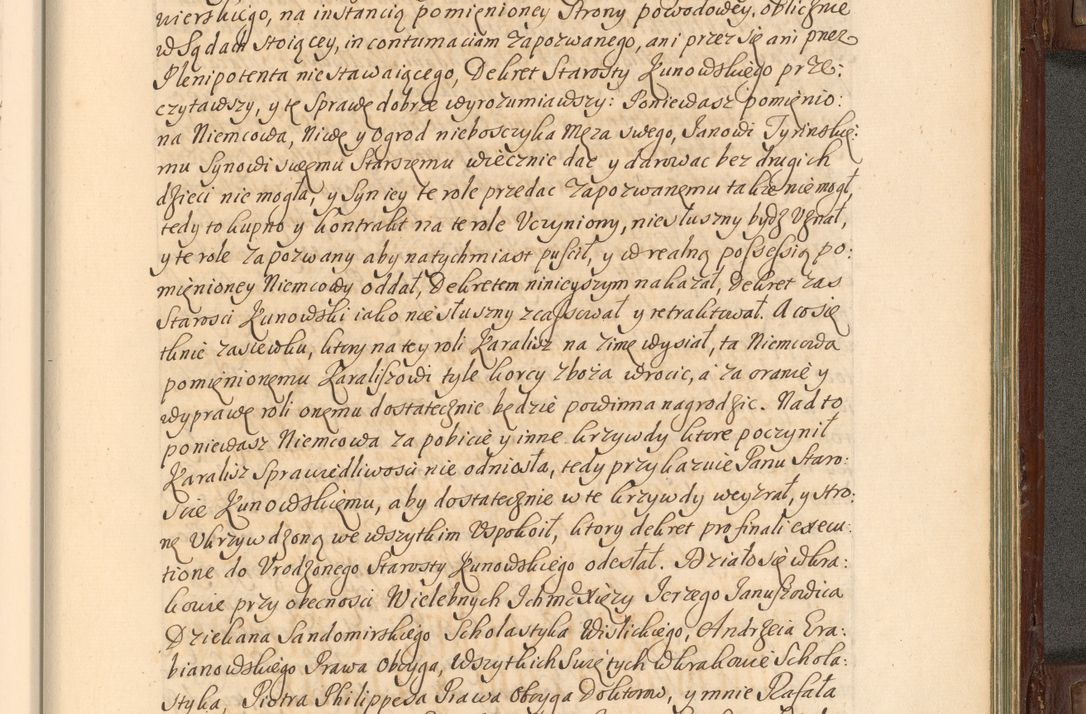 wierskiego, na instancią pomięnioney Strony powodowey, oblicznie
w Sądach stoiącey, in contumaciam zapozwanego, ani przez się ani przez
Plenipotenta nie stawaiącego, Dekret Starosty Kunowskiego prze:
czytawszy, y tę Sprawę dobrze wyrozumiawszy: Ponieważ pomięnio:
na Niemcowa, Niwę y Ogrod nieboszczyka Męża swego, Janowi Tyrinskie:
mu Synowi swęmu Starszemu wiecznie dać y darować bez drugich
dzieci nie mogła, y Syn iey te role przedać zapozwanemu także nie mogł,
tedy to kupno y kontrakt na te role Uczyniony, niesłuszny bydz Uznał,
y te role zapozwany aby natychmiast puścił, y w realną possessią po:
mięnioney Niemcowy oddał, Dekretem ninieyszym nakazał, Dekret zas
Starosci Kunowski iako nie słuszny zcassował y retraktował. A co się
tknie zasiewku, ktory na tey roli Karalisz na zimę wysiał, ta Niemcowa
pomięnionemu Karaliszowi tyle korcy zboża wrocic, a za oranie y
wyprawę roli onemu dostatecznie będzie powinna nagrodzic. Nad to
ponieważ Niemcowa za pobicie y inne krzywdy ktore poczynił
Karalisz Sprawiedliwosci nie odniosła, tedy przykazuie Panu Staro:
scie Kunowskiemu, aby dostatecznie w te krzywdy weyzrał, y stro:
nę Ukrzywdzoną we wszytkim Uspokoił, ktory dekret pro finali execu:
tione do Urodzonego Starosty Kunowskiego odesłał. Działo się w Kra:
kowie przy obecnosci Wielebnych Ichmc Xięzy Jerzego Januszowica
Dziekana Sandomirskiego Scholastyka Wislickiego, Andrzeia Gra:
bianowskiego Prawa Oboyga, Wszytkich Swiętych w Krakowie Schola:
styka, Piotra Philippeya Prawa Oboyga Doktorow, y mnie Rafała